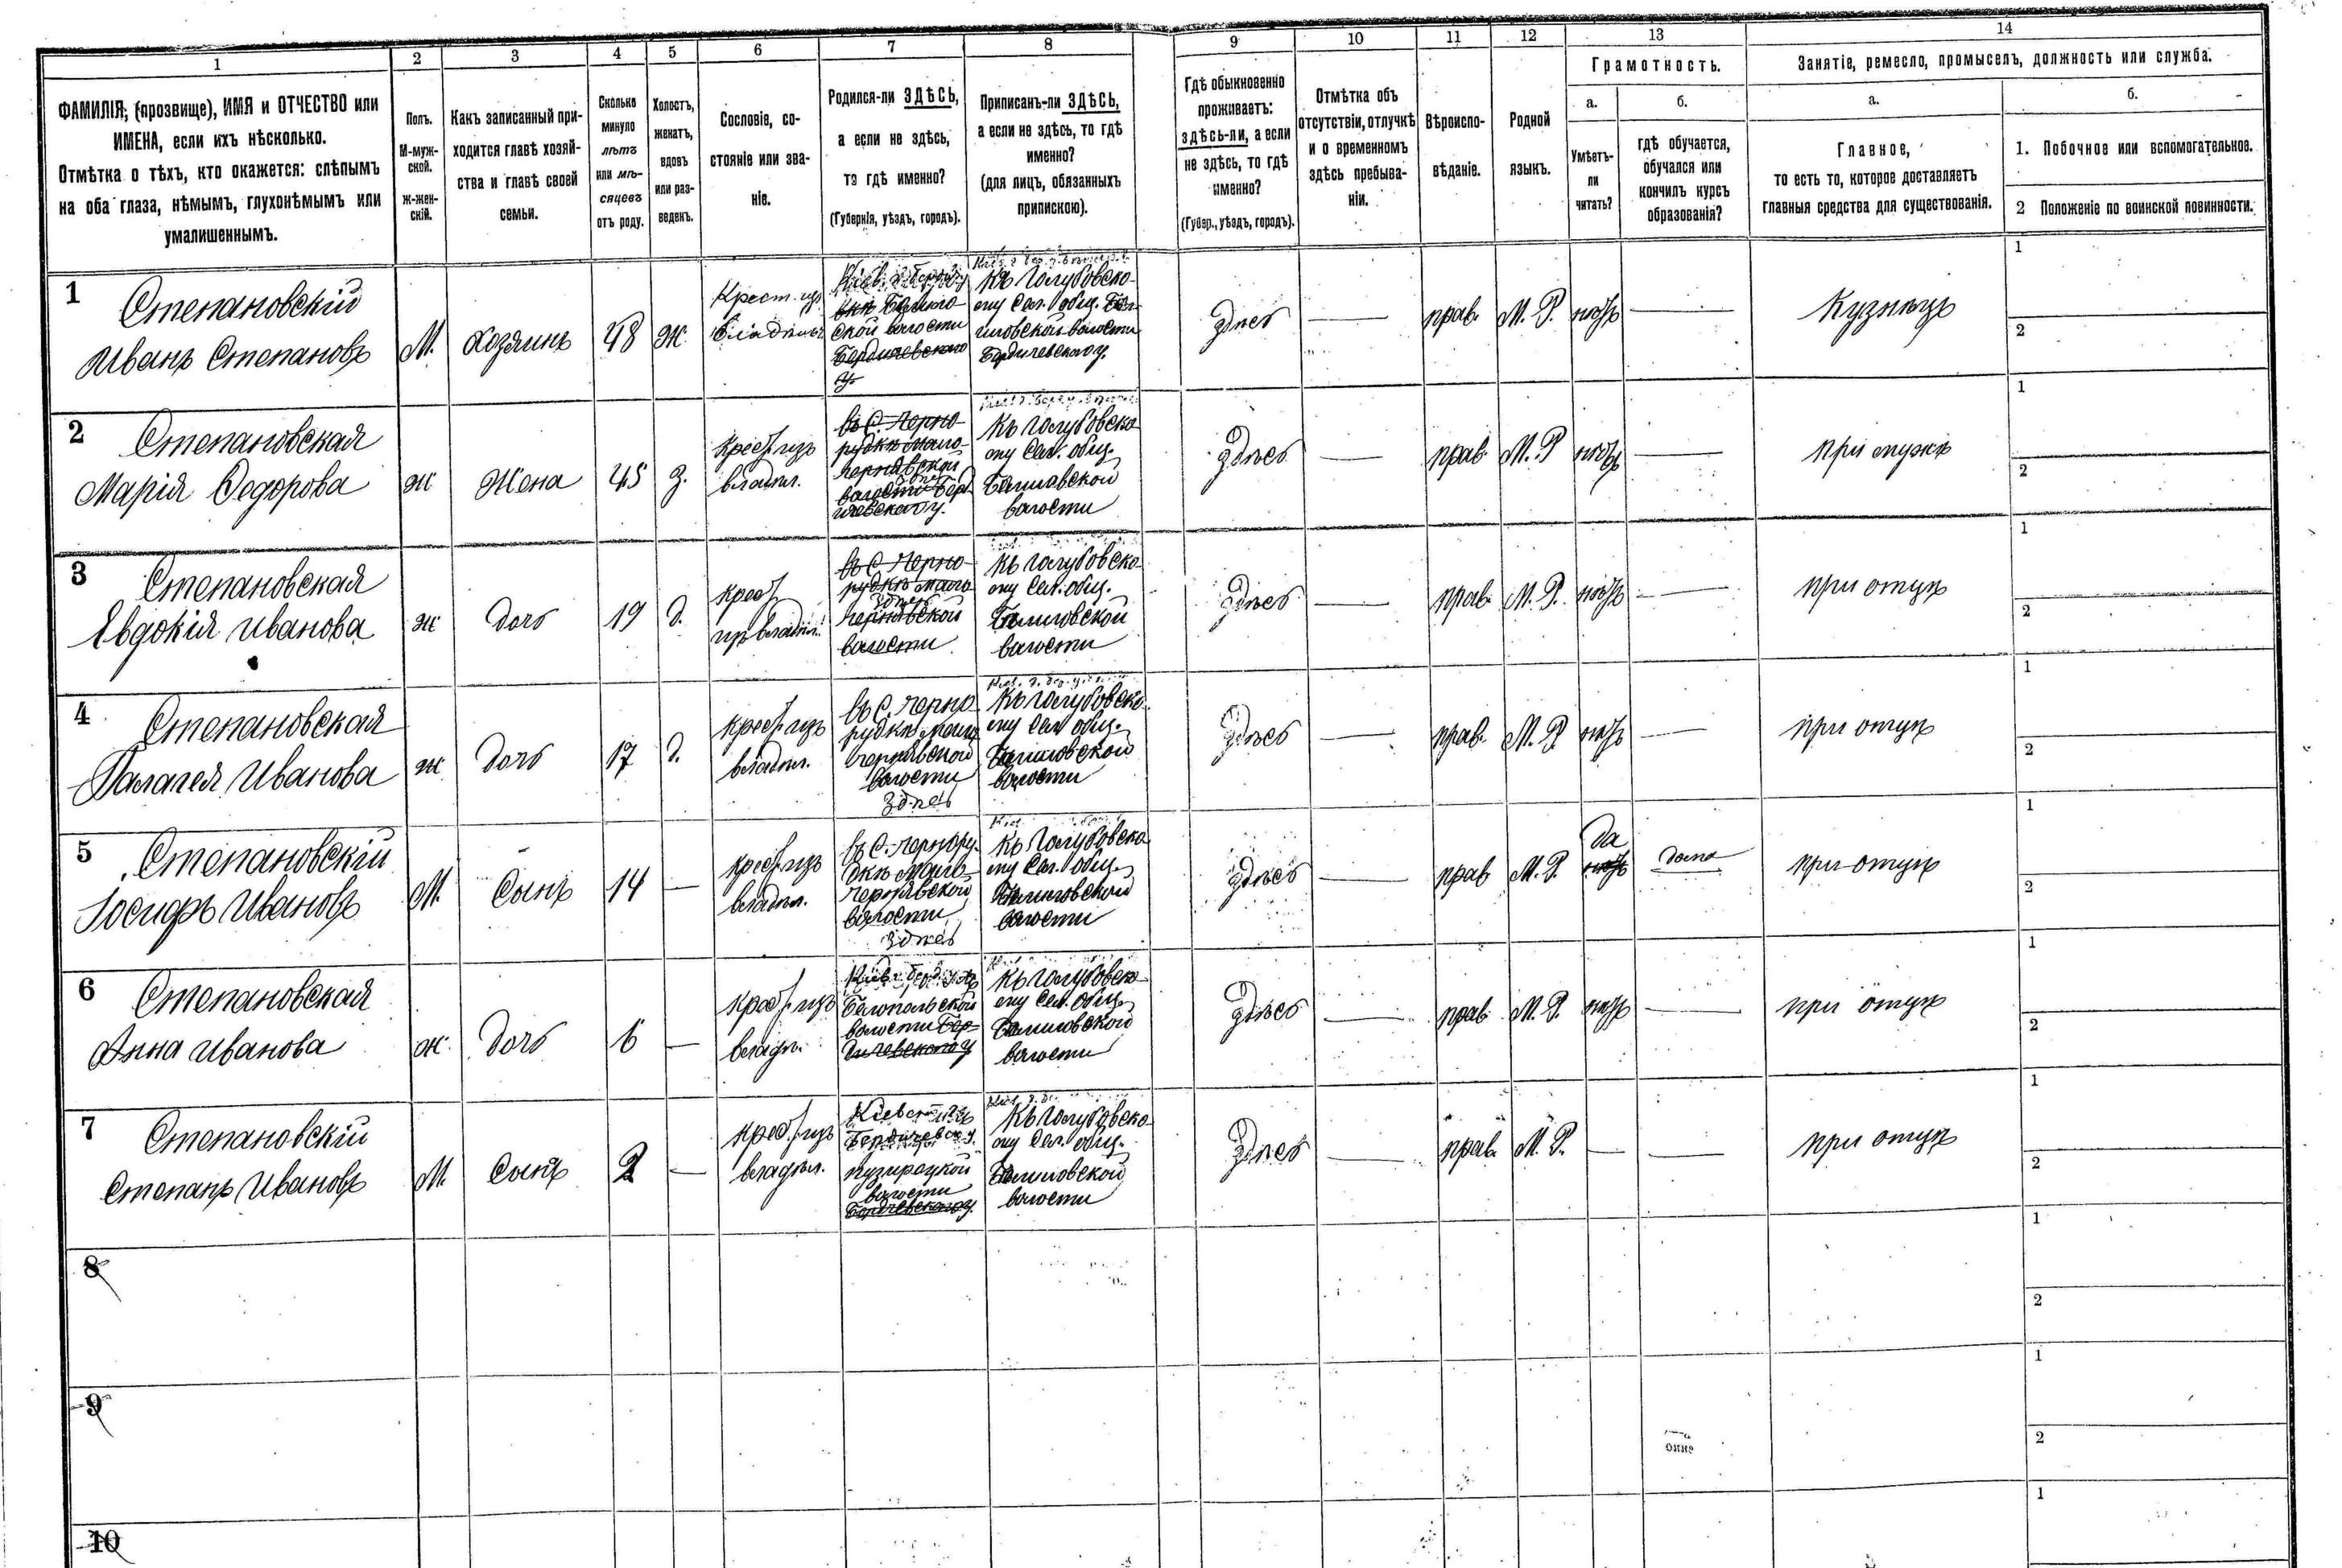 1
2
3
4
5
6
7
8
9
10
11
12
13
14
ФАМИЛІЯ, (прозвище), ИМЯ и ОТЧЕСТВО или
ИМЕНА, если ихъ нѣсколько.
Отмѣтка о тѣхъ, кто окажется: слѣпымъ
на оба глаза, нѣмымъ, глухонѣмымъ или
умалишеннымъ.
Полъ.
М-муж-
ской.
ж-жен-
скій.
Какъ записанный при-
ходится главѣ хозяй-
ства и главѣ своей
семьи.
Сколько
минуло
лѣтъ
или мѣ-
сяцевъ
отъ роду.
Холостъ,
женатъ,
вдовъ
или раз-
веденъ.
Сословіе, со-
стояніе или зва-
ніе.
Родился-ли ЗДѢСЬ,
а если не здѣсь,
то гдѣ именно?
(Губернія, уѣздъ, городъ).
Приписанъ-ли ЗДѢСЬ,
а если не здѣсь, то гдѣ
именно?
(для лицъ, обязанныхъ
припискою).
Гдѣ обыкновенно
проживаетъ:
здѣсь-ли, а если
не здѣсь, то гдѣ
именно?
(Губер., уѣздъ, городъ).
Отмѣтка объ
отсутствіи, отлучкѣ
и о временномъ
здѣсь пребыва-
ніи.
Вѣроиспо-
вѣданіе.
Родной
языкъ.
Грамотность.
а.
Умѣетъ-
ли
читать?
б.
гдѣ обучается,
обучался или
кончилъ курсъ
образованія?
Занятіе, ремесло, промыселъ, должность или служба.
а.
Главное,
то есть то, которое доставляетъ
главныя средства для существованія.
б.
1. Побочное или вспомогательное.
2 Положеніе по воинской повинности.
1
Степановскій
Иванъ Степановъ
М.
Хозяинъ
48
ж.
Крест. изъ
владѣль
ской волости
Бердичевскаго
у.
Къ Голубовско-
му Сел. общ.
волости
Бердичевскаго у.
здѣсь
прав.
М. Р.
нѣтъ
Кузнецъ
1
2
2
Степановская
Марія Ѳедорова
ж
Жена
45
з.
Крест. изъ
владѣл.
въ С. Черно-
рудкѣ Мало-
чернявской
волости Бер-
дичевскаго у.
Къ Голубовско-
му Сел. общ.
волости
здѣсь
прав.
М. Р
нѣтъ
при мужѣ
1
2
3
Степановская
Евдокія Иванова
ж
дочь
19
д.
Крест.
изъ владѣл.
въ С. Черно-
рудкѣ Мало
здѣсь
чернявской
волости
Къ Голубовско-
му Сел. общ.
волости
здѣсь
прав.
М. Р.
нѣтъ
при отцѣ
1
2
4
Степановская
Палагея Иванова
ж
дочь
17
д.
Крест. изъ
владѣл.
въ С. Черно
рудкѣ Мало
чернявской
волости
здѣсь
Къ Голубовско-
му Сел. общ.
волости
здѣсь
прав.
М. Р.
нѣтъ
при отцѣ
1
2
5
Степановскій
Іосифъ Ивановъ
М.
Сынъ
14
Крест. изъ
владѣл.
въ С. Чернору
дкѣ Мало-
чернявской
волости
здѣсь
Къ Голубовско
му Сел. общ.
волости
здѣсь
прав
М. Р.
да
нѣтъ
дома
при отцѣ
1
2
6
Степановская
Анна Иванова
ж.
дочь
6
Крест. изъ
владѣл.
Бѣлопольской
волости Бер-
дичевскаго у
Къ Голубовско-
му Сел. общ.
волости
здѣсь
прав.
М. Р.
нѣтъ
при отцѣ
1
2
7
Степановскій
Степанъ Ивановъ
М.
Сынъ
2
Крест. изъ
владѣл.
волости
Бердичевскаго у.
Къ Голубовско
му Сел. общ.
волости
здѣсь
прав.
М. Р.
при отцѣ
1
2
8
1
2
9
1
2
10
1